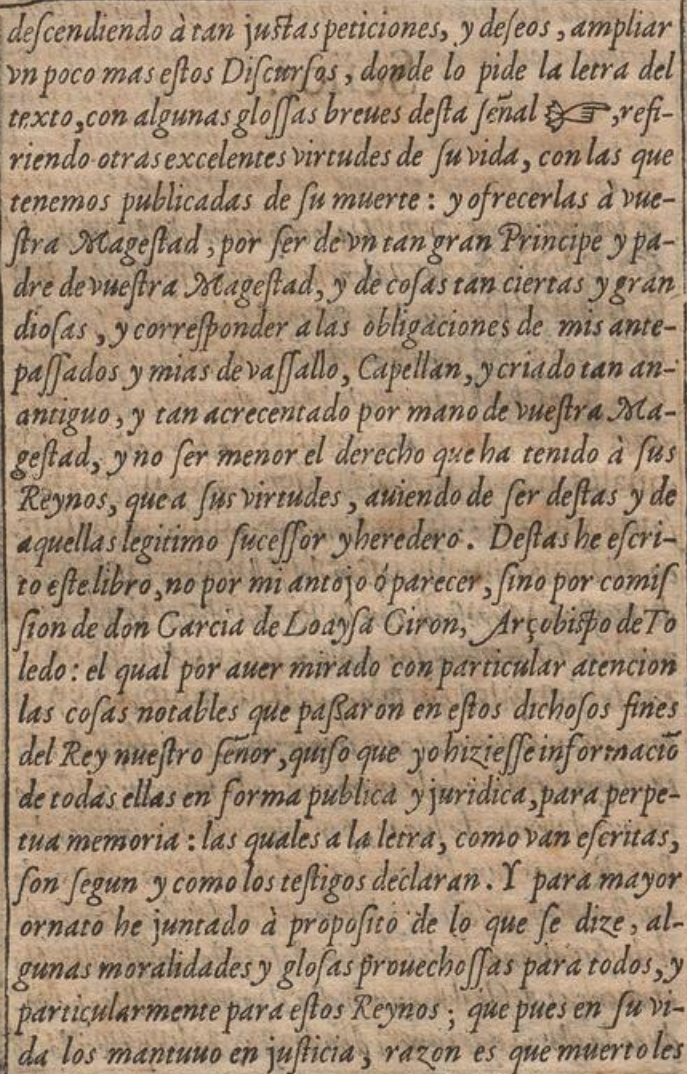 descendiendo à tan justas peticiones, y deseos, ampliar
vn poco mas estos Discursos, donde lo pide la letra del
texto, con algunas glossas breues desta señal ☞, refi-
riendo otras excelentes virtudes de su vida, con las que
tenemos publicadas de su muerte: y ofrecerlas à vue-
stra Magestad, por ser de vn tan gran Principe y pa-
dre de vuestra Magestad, y de cosas tan ciertas y gran
diosas, y corresponder a las obligaciones de mis ante-
passados y mias de vassallo, Capellan, y criado tan an-
antiguo, y tan acrecentado por mano de vuestra Ma-
gestad, y no ser menor el derecho que ha tenido à sus
Reynos, que a sus virtudes, auiendo de ser destas y de
aquellas legitimo sucessor y heredero. Destas he escri-
to este libro, no por mi antojo ó parecer, sino por comis
sion de don Garcia de Loaysa Giron, Arçobispo de To
ledo: el qual por auer mirado con particular atencion
las cosas notables que paßaron en estos dichosos fines
del Rey nuestro señor, quiso que yo hiziesse informaciõ
de todas ellas en forma publica y juridica, para perpe-
tua memoria: las quales a la letra, como van escritas,
son segun y como los testigos declaran. Y para mayor
ornato he juntado à proposito de lo que se dize, al-
gunas moralidades y glosas prouechossas para todos, y
particularmente para estos Reynos; que pues en su vi-
da los mantuuo en justicia, razon es que muerto les